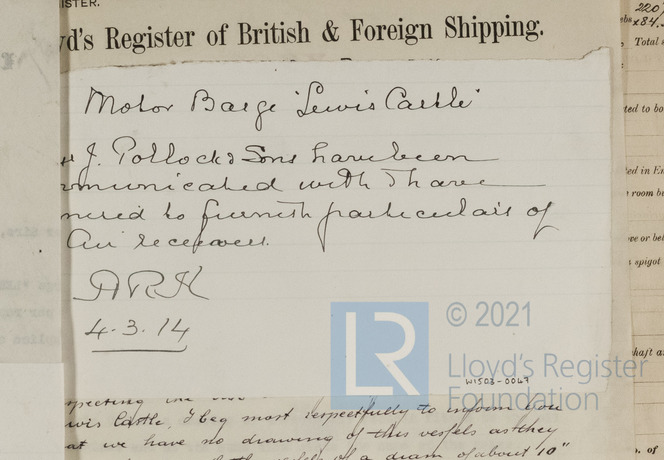 ISTER.
yd's Register of British & Foreign Shipping.
Motor Barge 'Lewis Castle'
J. Pollock & Sons have been
mmunicated with & have
to furnish particulars of
Air receivers.
ARK
4.3.14
© 2021
LR
Lloyd's Register
Foundation
W1503-0067
specting the
wis Castle, I beg most respectfully to inform you
at we have no drawing of this vessels as they
of a diam of about 10"
2207
x84.
Total
ted to bo
ed in En
room bu
ove or bel
s spigot
haft a
o. of